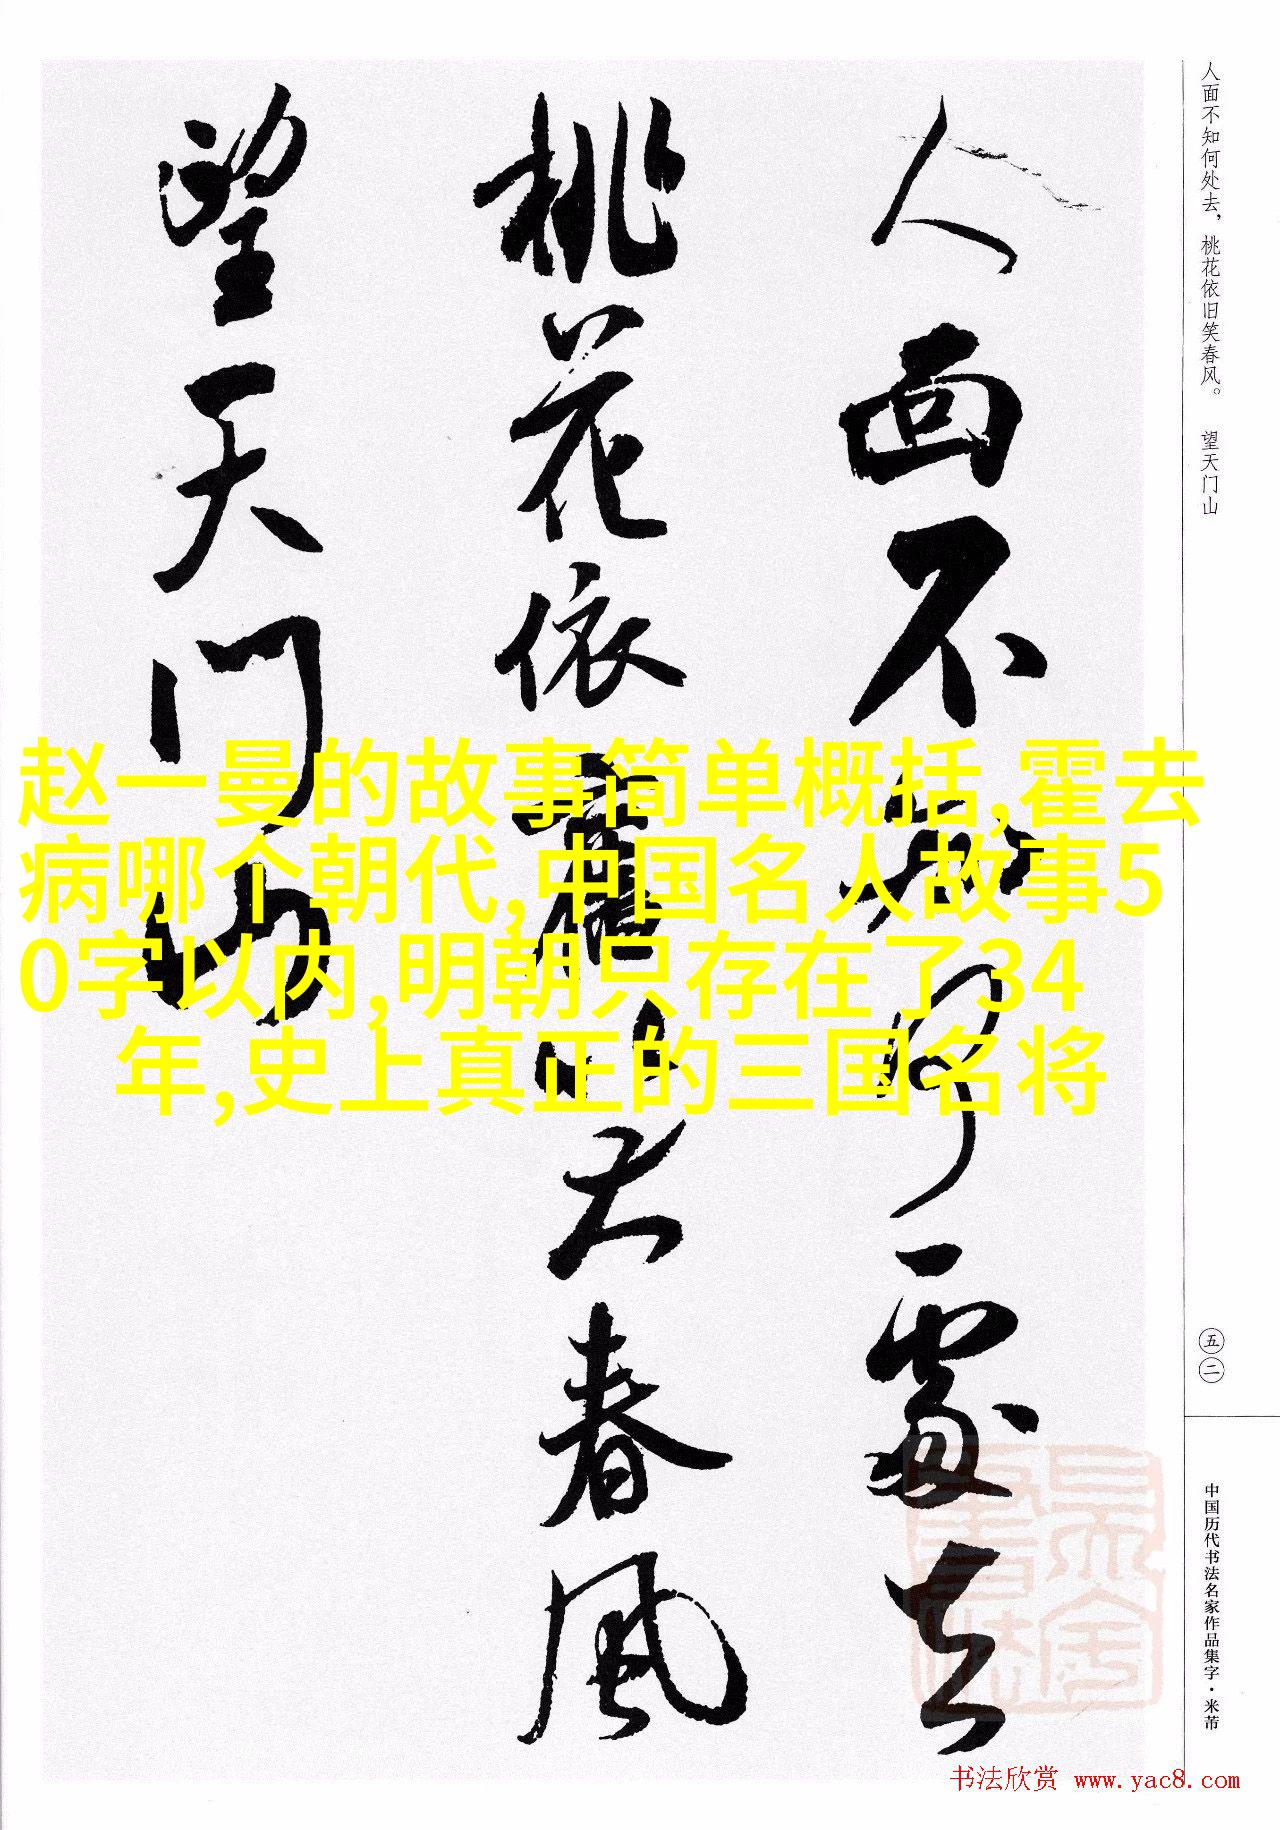 人面不知何处去，桃花依旧笑春风。 望天门山
人面不知何處去
桃花依舊笑春風
望天门山
赵一曼的故事简单概括,霍去
病哪个朝代,中国名人故事5
0字以内,明朝只存在了34
年,史上真正的三国名将
五二
中国历代书法名家作品集字·米芾
书法欣赏 www.yac8.com